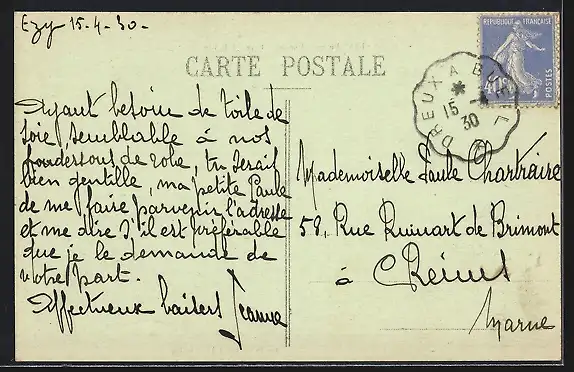 Ezy 15-4-30-
RÉPUBLIQUE FRANÇAISE
POSTES
40
CARTE POSTALE
DREUX A
15 -4
30
Ayant besoin de toile de
soie, semblable à nos
dessous de robe, tu serais
bien gentille, ma petite Paule
de me faire parvenir l'adresse
et me dire s'il est préférable
que je le demande de
votre part.
Affectueux baisers Jeanne
Mademoiselle Paule Chartraire
58, Rue Ruinart de Brimont
à Reims
Marne